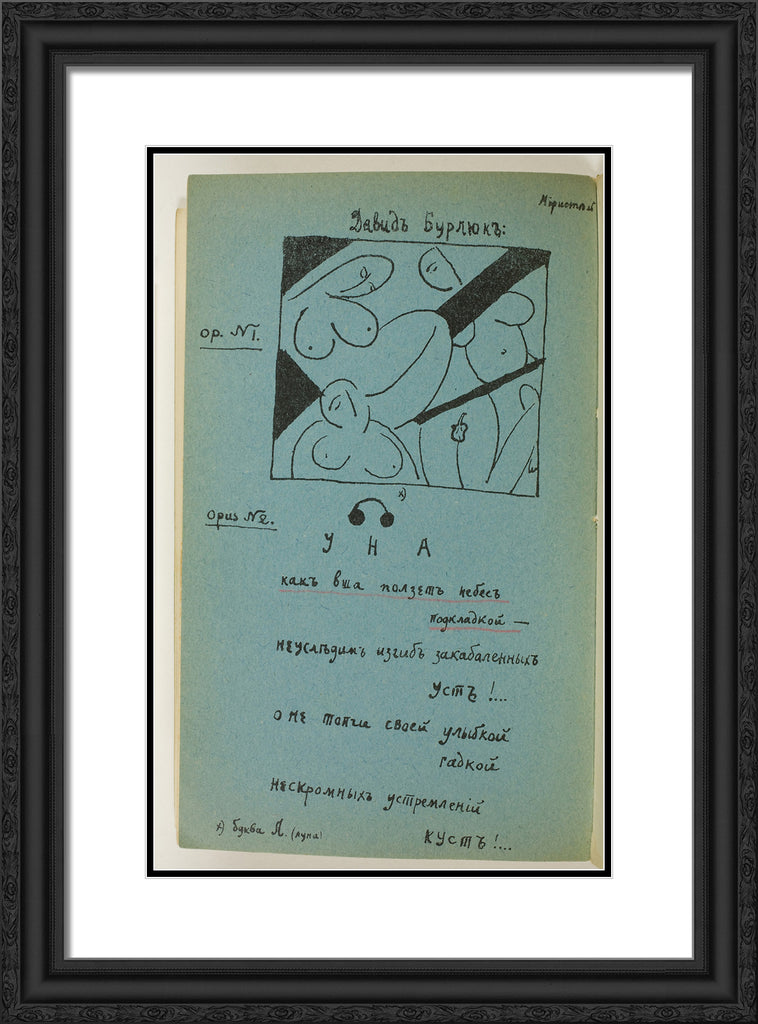 Давидъ Бурлюкъ:
ор. №1.
opus №2.
х)
У Н А
какъ вша ползетъ небесъ
подкладкой —
неуслѣдимъ изгибъ закабаленныхъ
устъ !...
о не топчи своей улыбкой
гадкой
нескромныхъ устремленій
кустъ !...
х) буква Л. (луна)